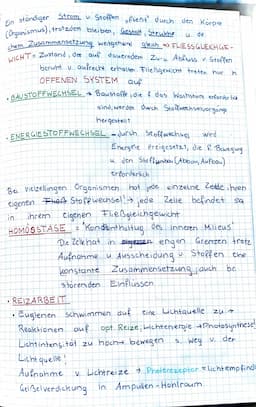 Ein ständiger Strom v. Stoffen "fließt" durch den Körper
(Organismus), trotzdem bleiben Gestalt, Struktur u. de
chem. Zusammensetzung weitgehend gleich => FLIESSGLEICHGE-
WICHT = Zustand, der auf dauerndem Zu- u. Abfluss v. Stoffen
beruht u. aufrecht erhalten. Fließgewicht treten nur in
OFFENEN SYSTEM auf
• BAUSTOFFWECHSEL → Baustoffe, die f. das Wachstum erforderlich
sind, werden durch Stoffwechselvorgänge
hergestellt
• ENERGIESTOFFWECHSEL → durch Stoffwechsel wird
Energie freigesetzt, die f. Bewegung
u. den Stoffumbau (Abbau, Aufbau)
erforderlich
Bei vielzelligen Organismen hat jede einzelne Zelle ihren
eigenen Stoffwechsel → jede Zelle befindet sich
in ihrem eigenen Fließgleichgewicht
HOMÖOSTASE = "Konstanthaltung des inneren Milieus"
Die Zelle hat in engen Grenzen trotz
Aufnahme u. Ausscheidung v. Stoffen eine
konstante Zusammensetzung, auch bei
störenden Einflüssen
• REIZARBEIT
• Euglenen schwimmen auf eine Lichtquelle zu →
Reaktionen auf opt. Reize, Lichtenergie → Photosynthese
Lichtintensität zu hoch → bewegen s. weg v. der
Lichtquelle!
Aufnahme v. Lichtreize → Photorezeptor = lichtempfindl.
Geißelverdickung in Ampullen-Hohlraum